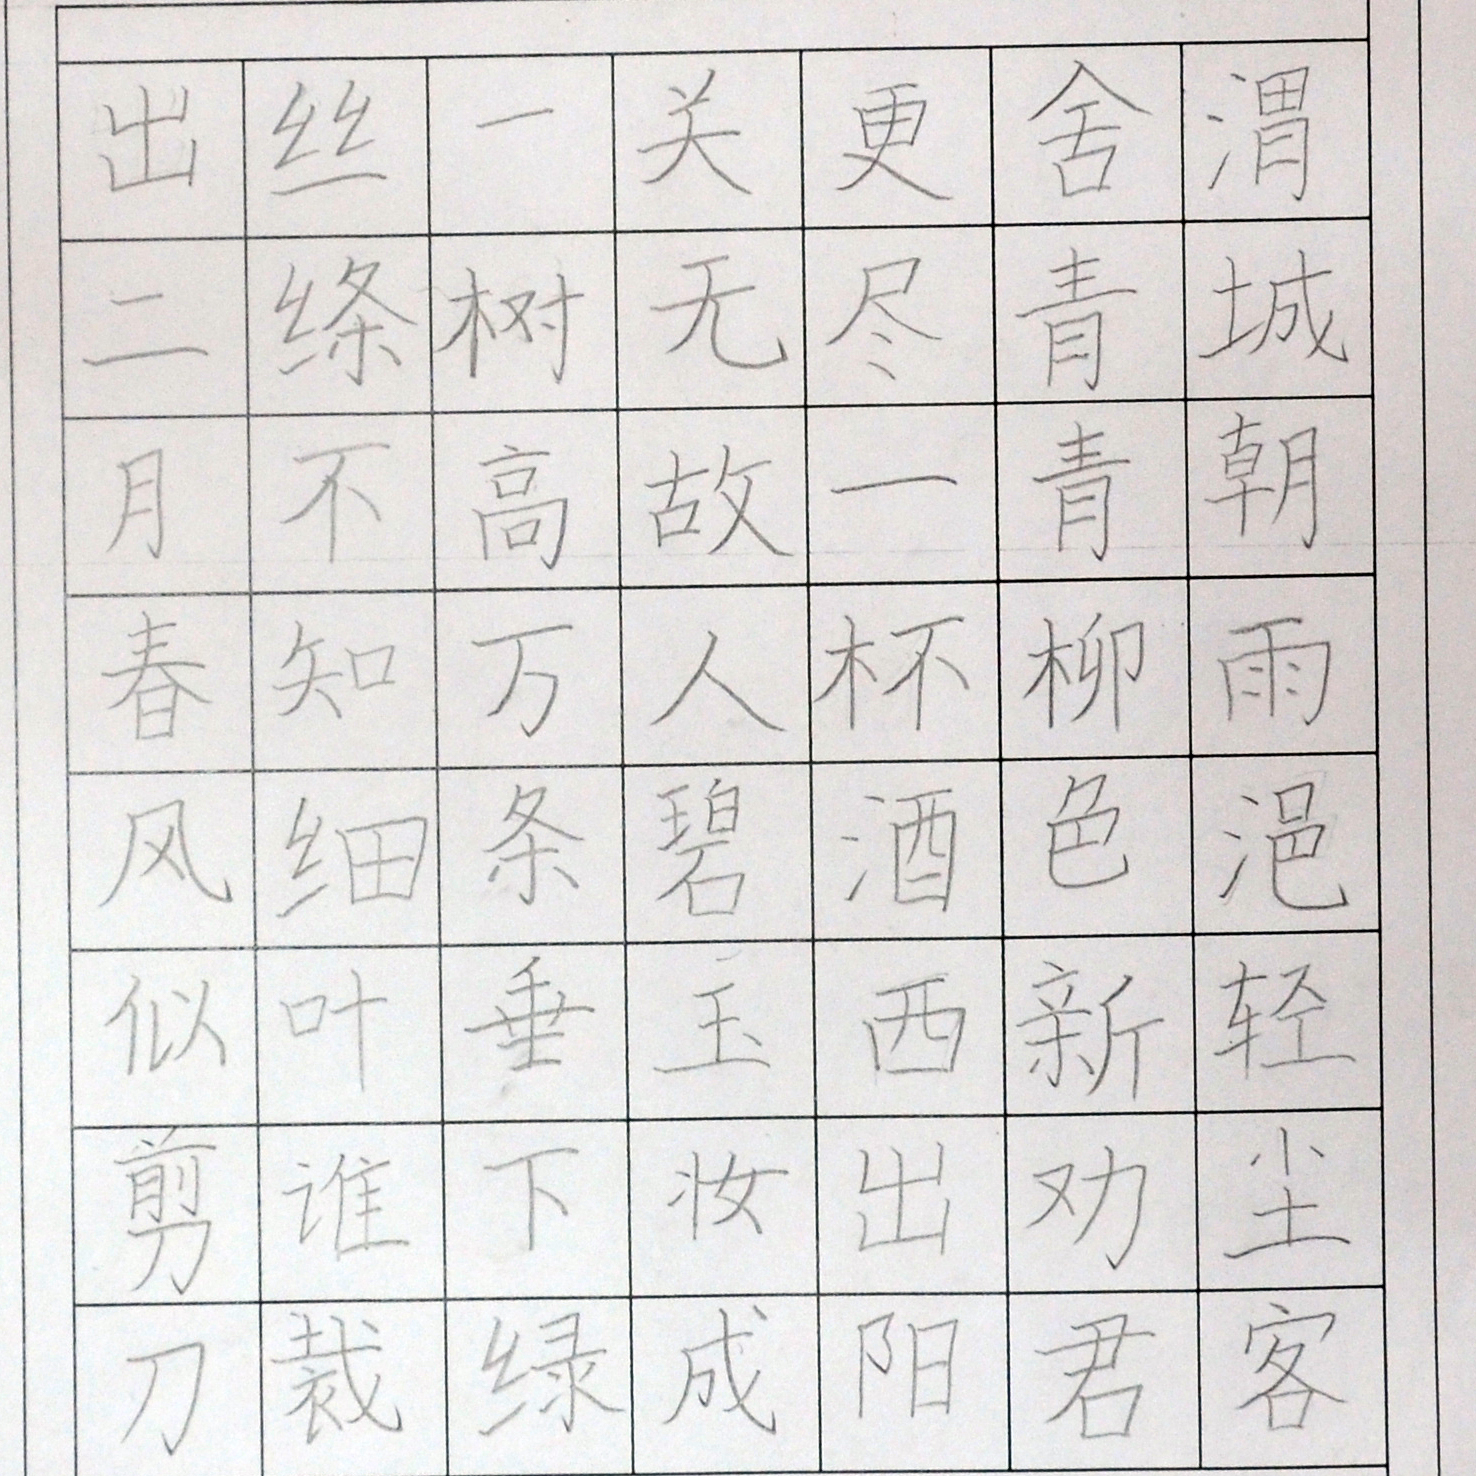 渭城朝雨浥轻尘客
舍青青柳色新劝君
更尽一杯酒西出阳
关无故人碧玉妆成
一树高万条垂下绿
丝绦不知细叶谁裁
出二月春风似剪刀